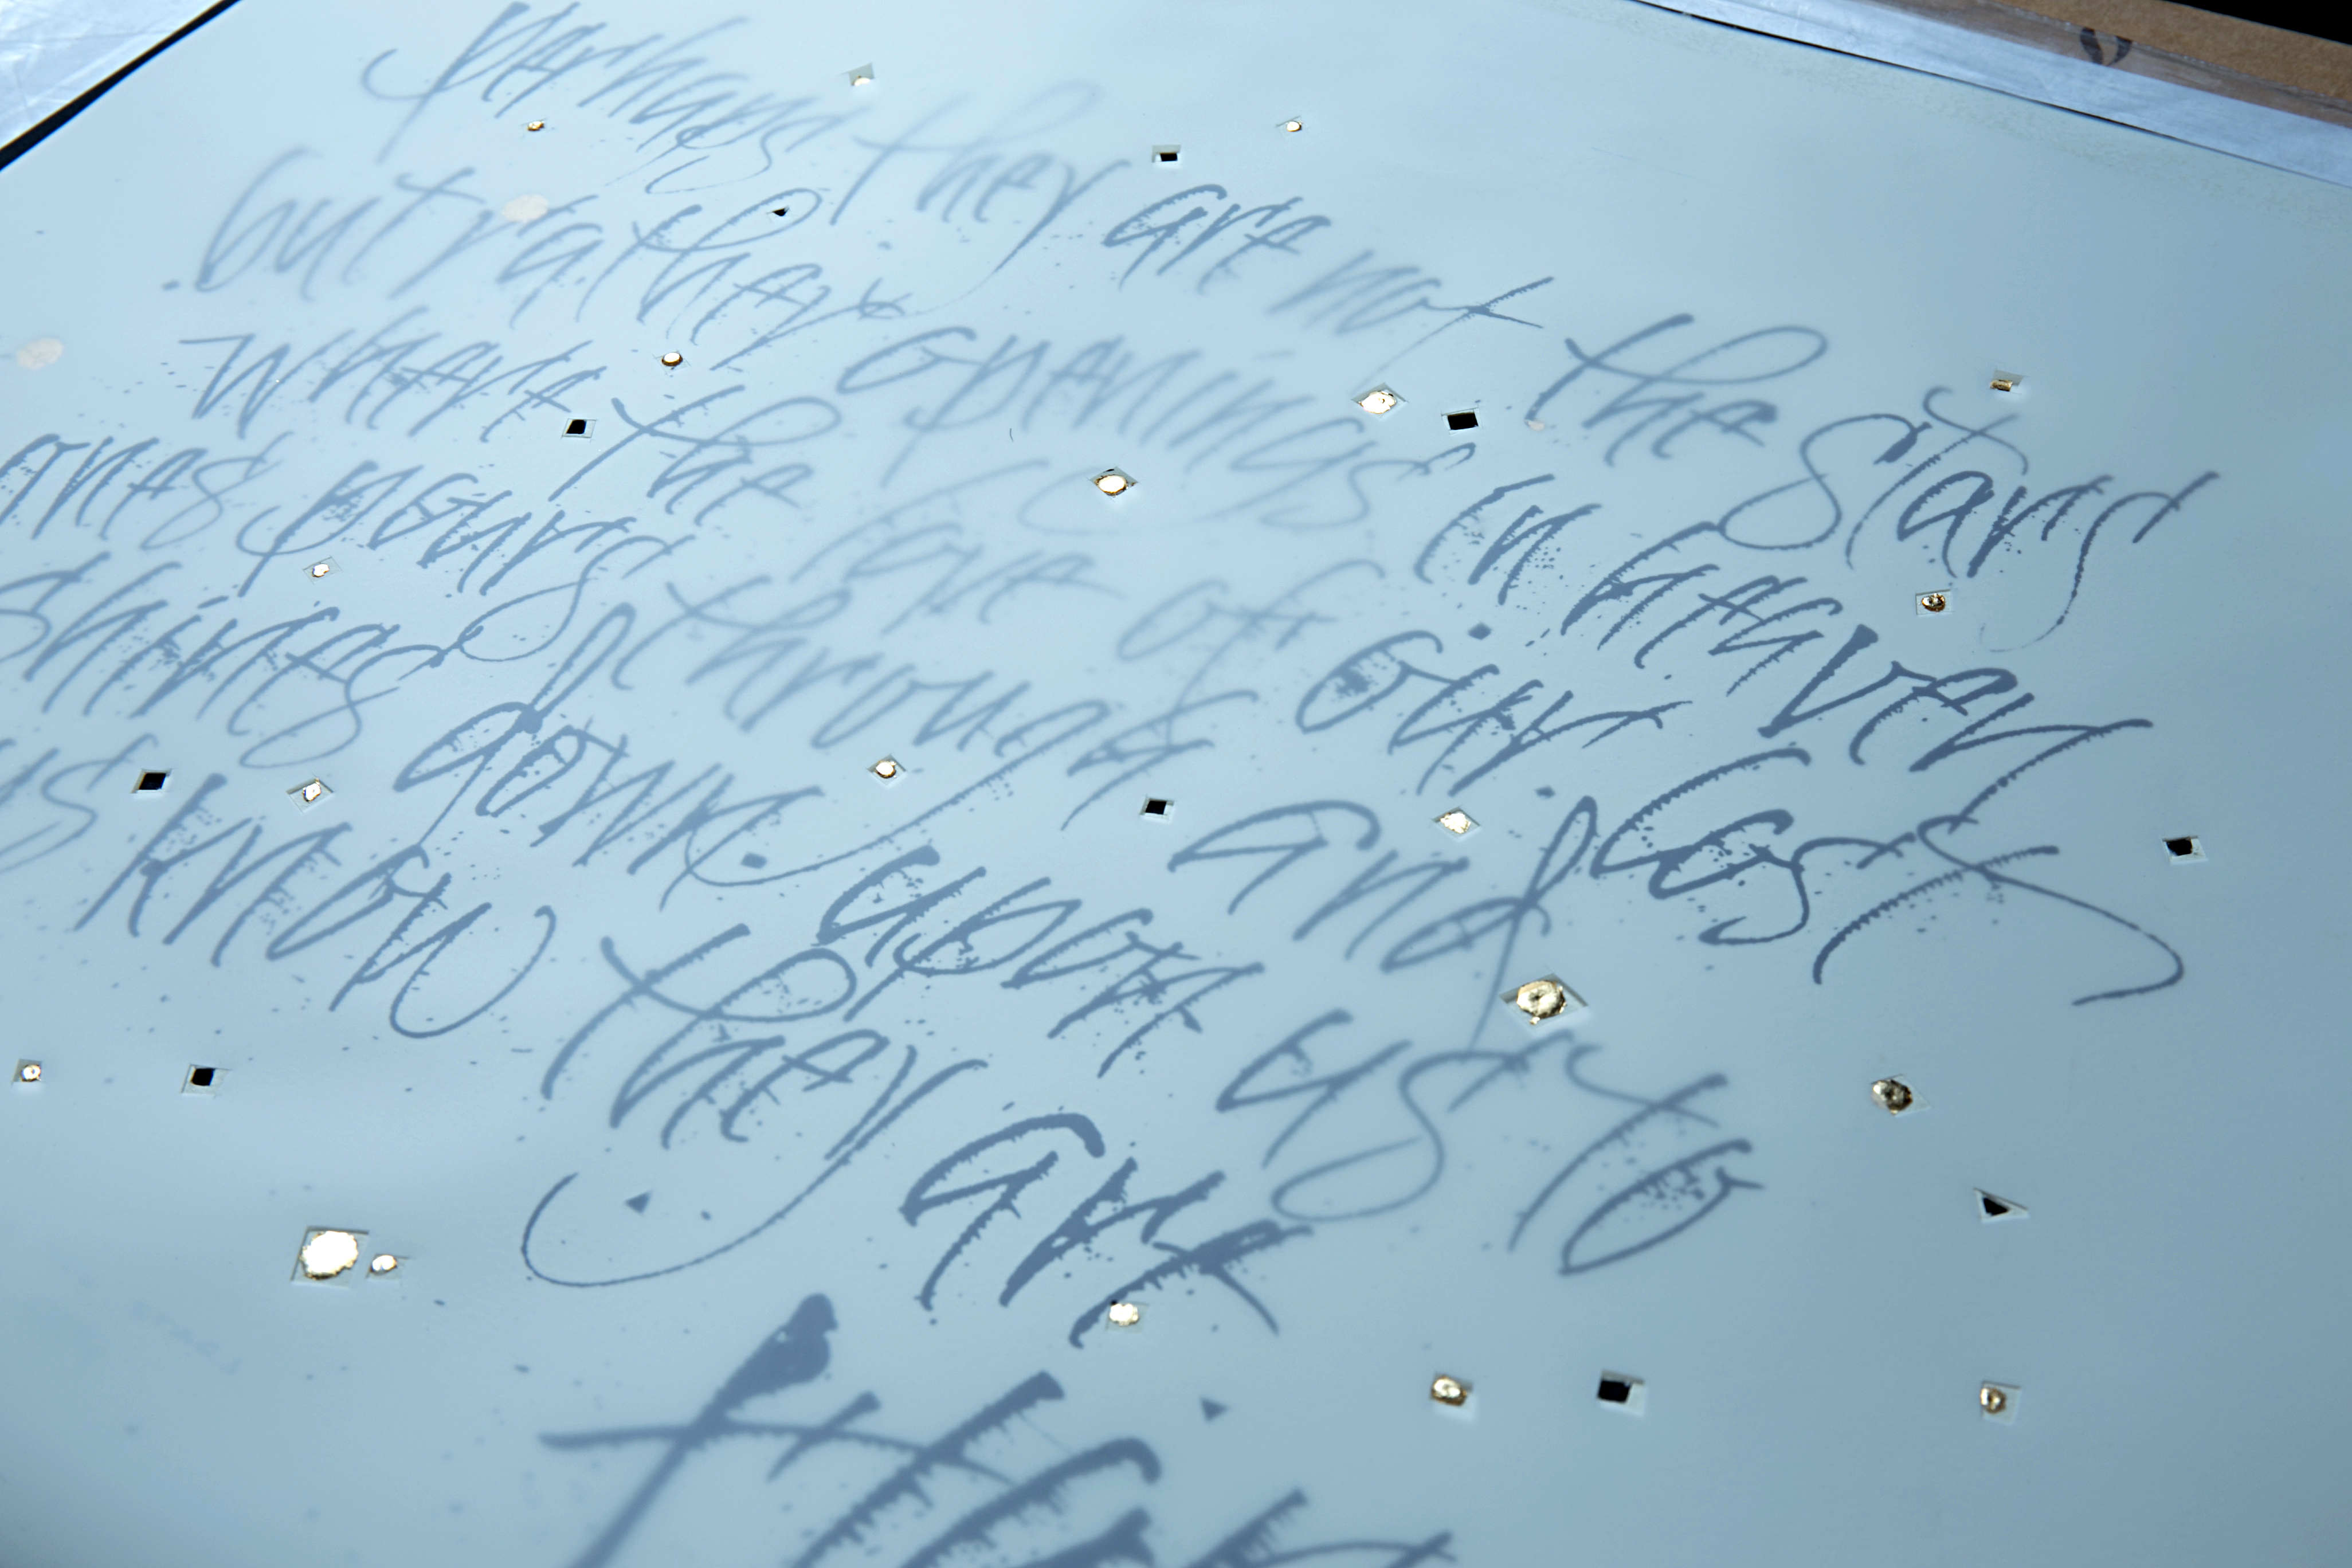 perhaps they are not the stars
but rather openings in heaven
where the love of our lost
ones pours through and
shines down upon us to
us know they are